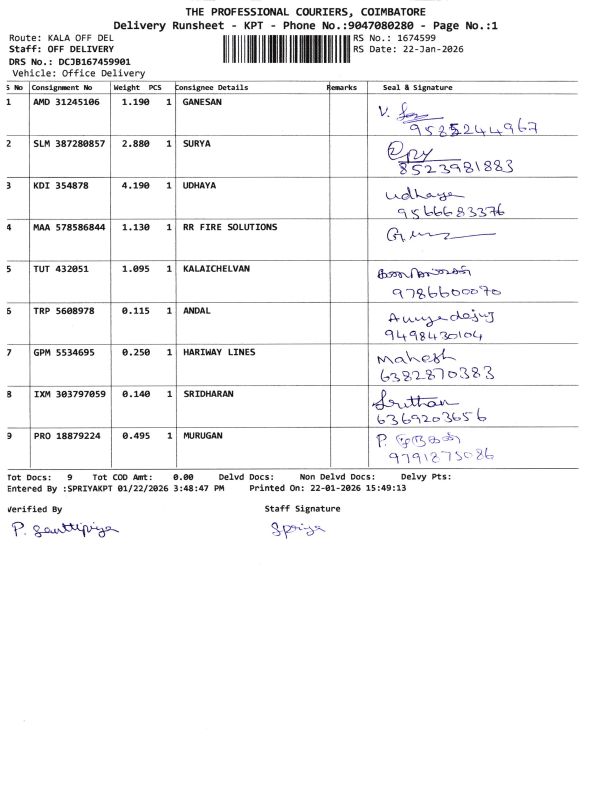 THE PROFESSIONAL COURIERS, COIMBATORE
Delivery Runsheet - KPT - Phone No.:9047080280 - Page No.:1
Route: KALA OFF DEL RS No.: 1674599
Staff: OFF DELIVERY RS Date: 22-Jan-2026
DRS No.: DCJB167459901
Vehicle: Office Delivery
S No Consignment No Weight PCS Consignee Details Remarks Seal & Signature
1 AMD 31245106 1.190 1 GANESAN V.
9585244967
2 SLM 387280857 2.880 1 SURYA
8523981883
3 KDI 354878 4.190 1 UDHAYA Udhaya
9566683376
4 MAA 578586844 1.130 1 RR FIRE SOLUTIONS
5 TUT 432051 1.095 1 KALAICHELVAN
9786600070
6 TRP 5608978 0.115 1 ANDAL
9498430104
7 GPM 5534695 0.250 1 HARIWAY LINES Mahesh
6382870383
8 IXM 303797059 0.140 1 SRIDHARAN
6369203656
9 PRO 18879224 0.495 1 MURUGAN P. முருகன்
9791875086
Tot Docs: 9 Tot COD Amt: 0.00 Delvd Docs: Non Delvd Docs: Delvy Pts:
Entered By :SPRIYAKPT 01/22/2026 3:48:47 PM Printed On: 22-01-2026 15:49:13
Verified By Staff Signature
P. Spriya